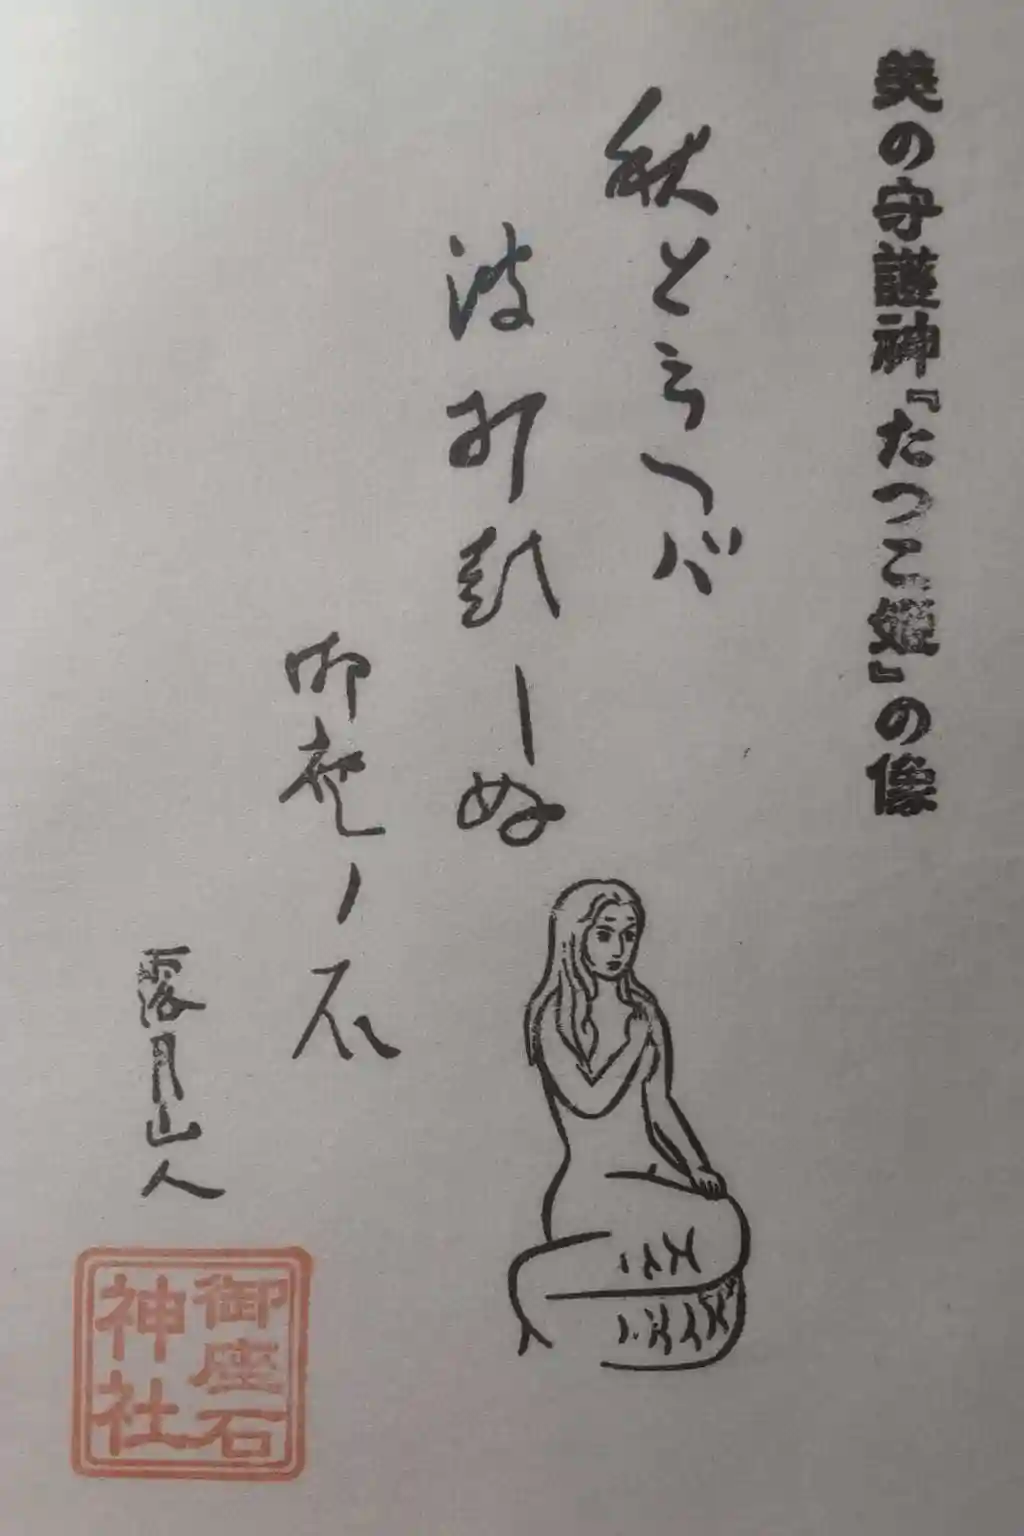 美の守護神『たつこ姫』の像
秋と言へバ
波打越しぬ
御座ノ石
露月山人
御座石
神社